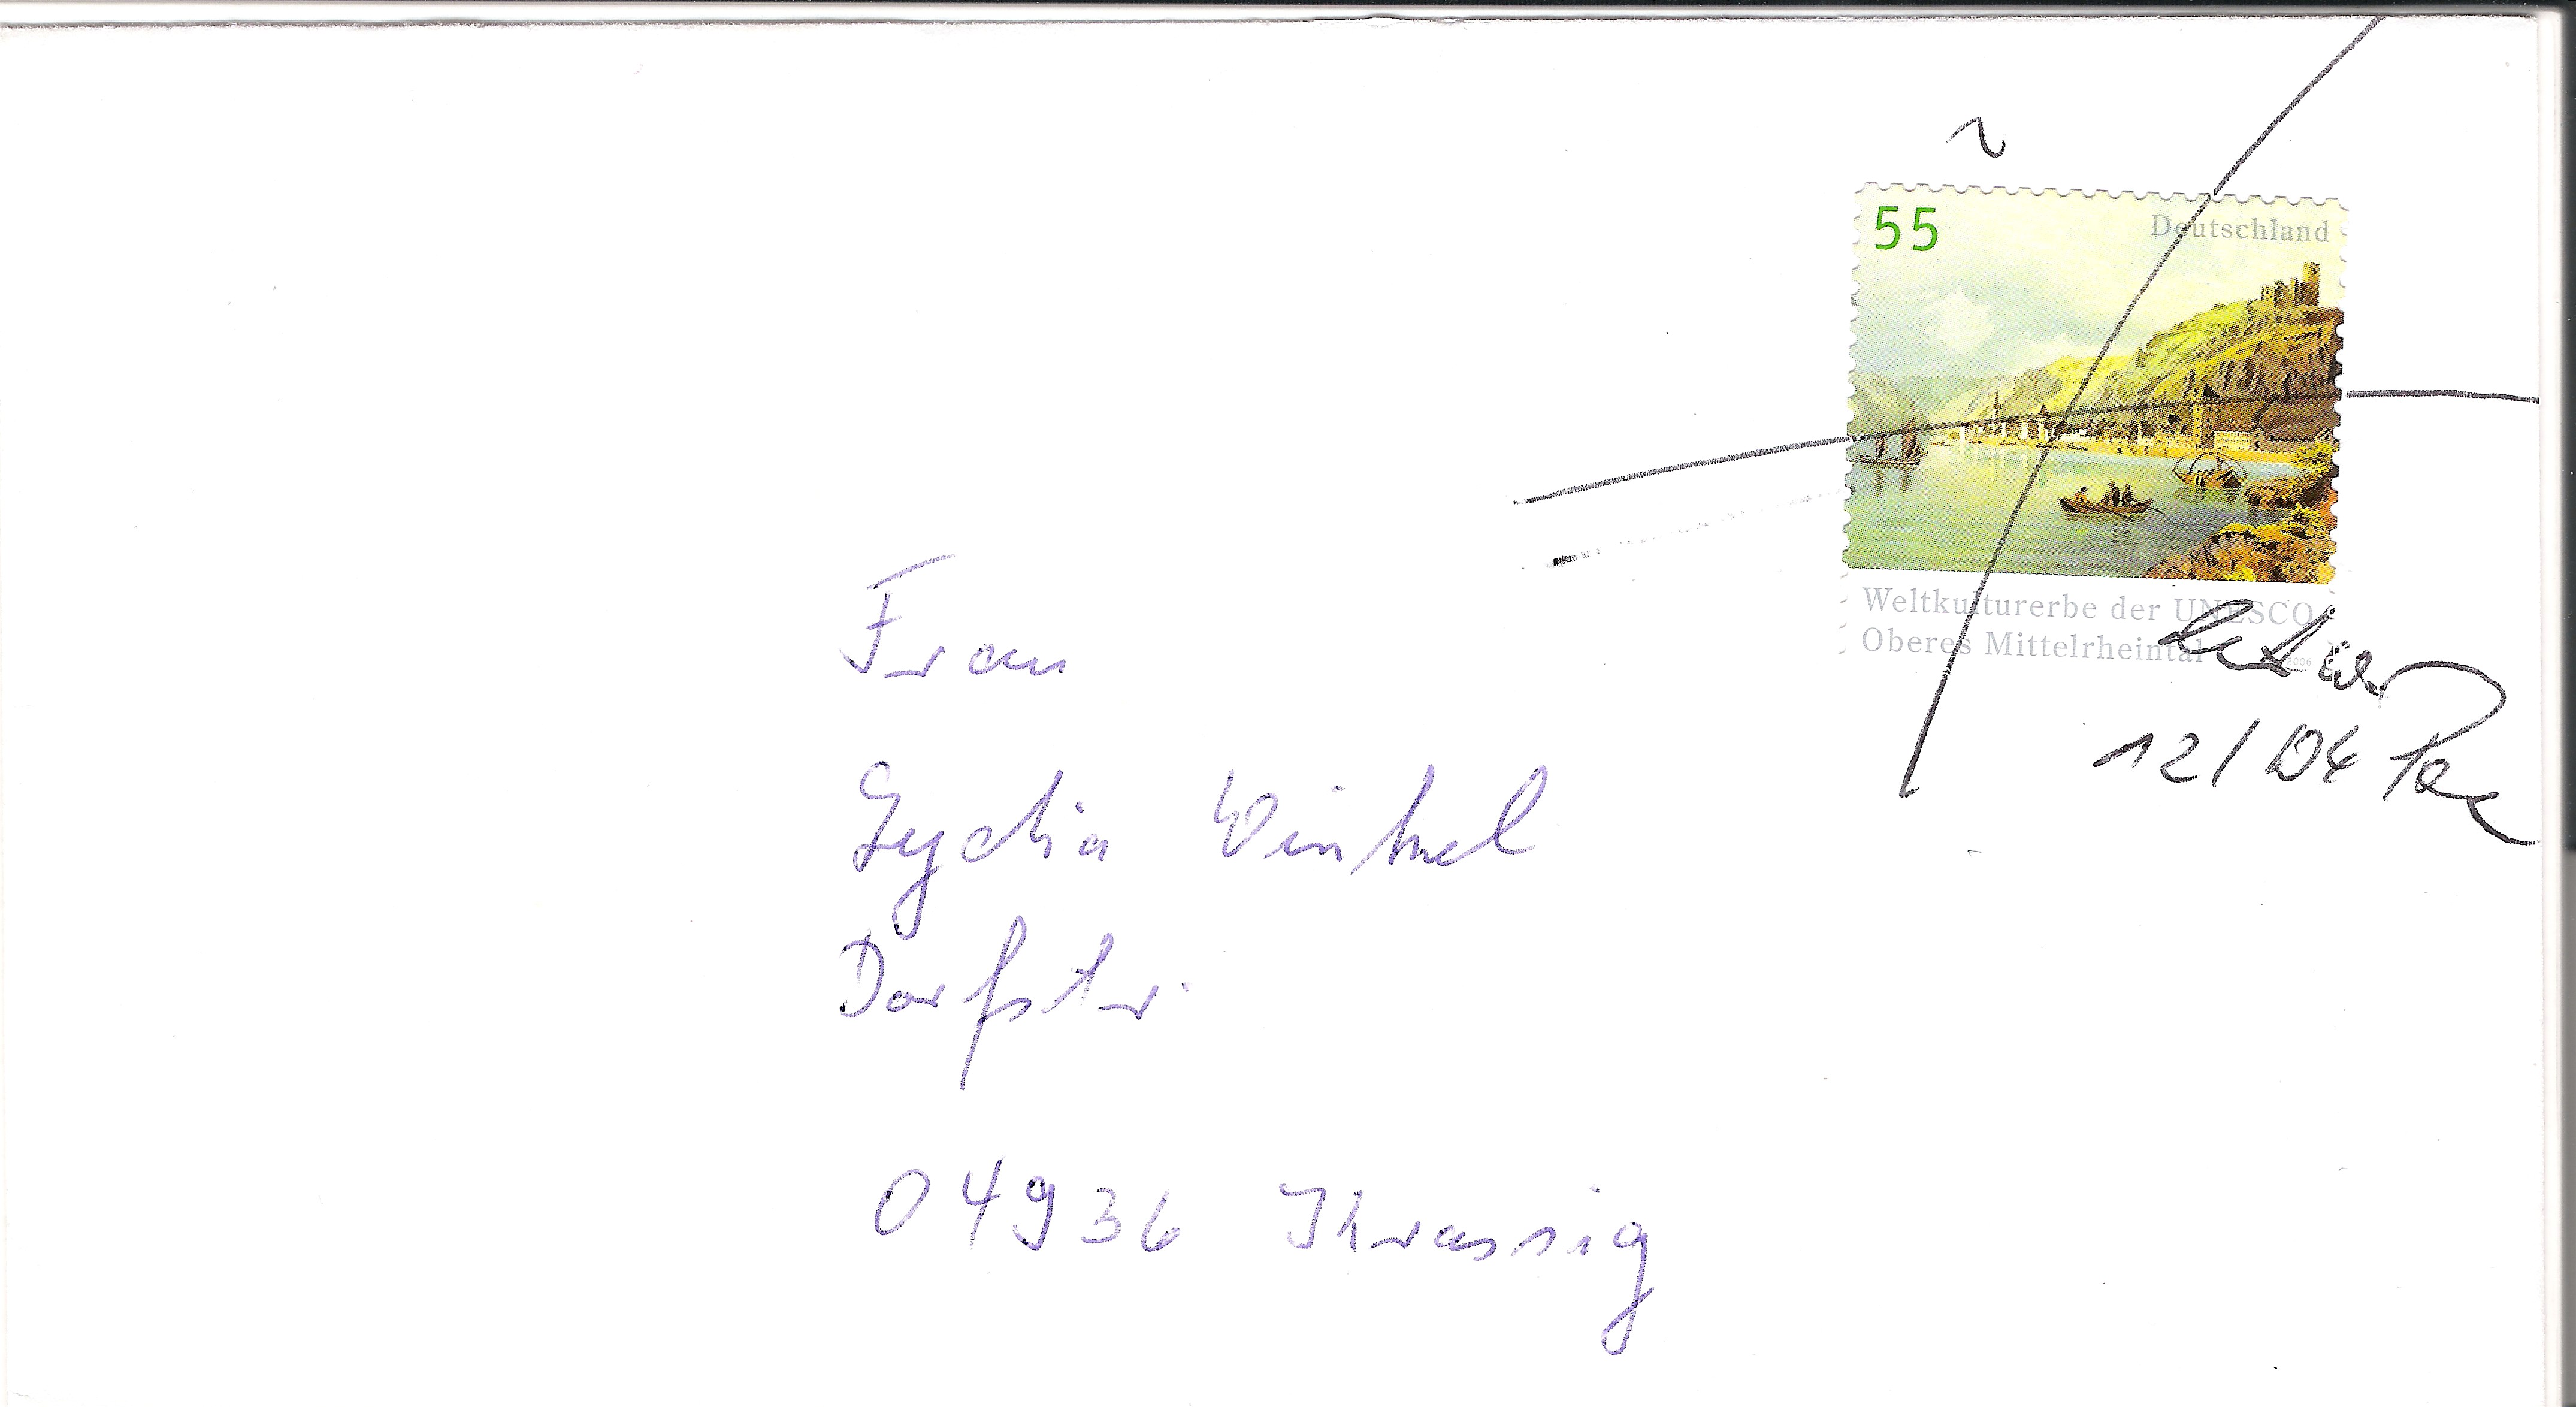 55
Deutschland
Weltkulturerbe der UNESCO
Oberes Mittelrheintal
2006
12/
Frau
Lydia Winkel
Dorfstr.
04936 Ihrassig